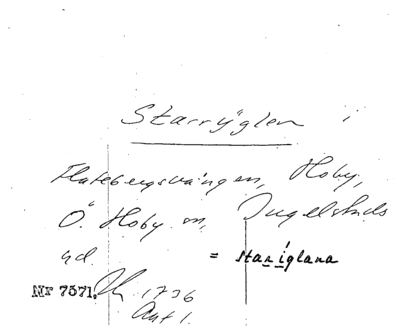 Starrÿglen i
Flatebergsvången, Hoby,
Ö. Hoby sn, Ingelstads
hd. = starıglana
Nr 7571. 1736
Akt 1.